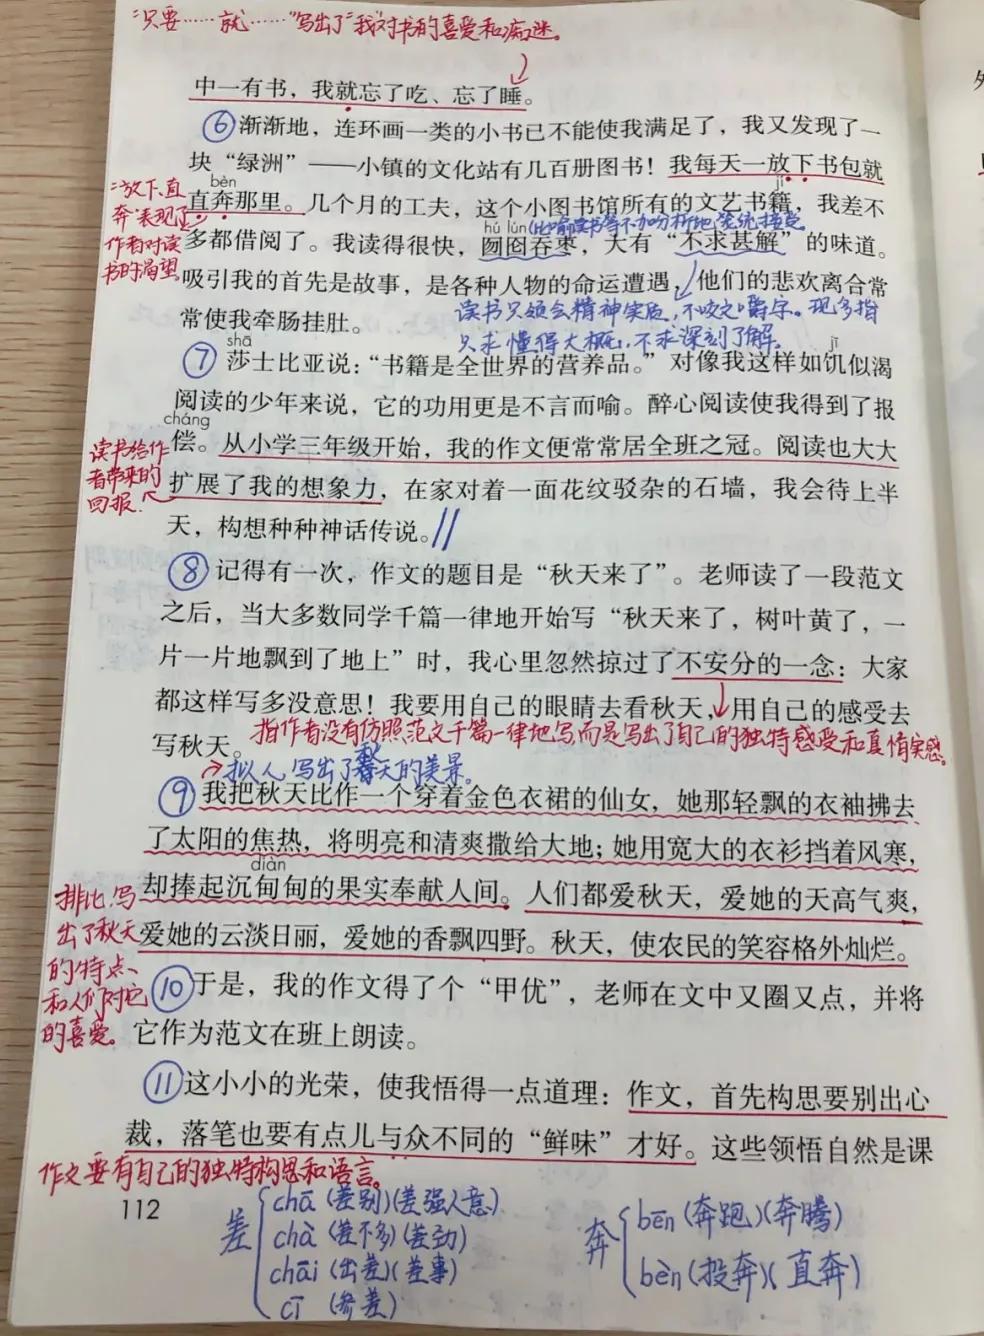 “只要……就……”写出了“我”对书的喜爱和痴迷。
中一有书，我就忘了吃、忘了睡。
⑥渐渐地，连环画一类的小书已不能使我满足了，我又发现了一
块“绿洲”——小镇的文化站有几百册图书！我每天一放下书包就
bèn
jí
直奔那里。几个月的工夫，这个小图书馆所有的文艺书籍，我差不
“放下、直
奔”表现了
作者对读
书的渴望。
hú lún
(比喻读书等不加分析地笼统接受。
多都借阅了。我读得很快，囫囵吞枣，大有“不求甚解”的味道。
吸引我的首先是故事，是各种人物的命运遭遇，他们的悲欢离合常
常使我牵肠挂肚。
读书只领会精神实质，不咬文嚼字。现多指
只求懂得大概，不求深刻了解。
shā
jī
⑦莎士比亚说：“书籍是全世界的营养品。”对像我这样如饥似渴
阅读的少年来说，它的功用更是不言而喻。醉心阅读使我得到了报
cháng
偿。从小学三年级开始，我的作文便常常居全班之冠。阅读也大大
扩展了我的想象力，在家对着一面花纹驳杂的石墙，我会待上半
天，构想种种神话传说。//
读书给作
者带来的
回报.
⑧记得有一次，作文的题目是“秋天来了”。老师读了一段范文
之后，当大多数同学千篇一律地开始写“秋天来了，树叶黄了，一
片一片地飘到了地上”时，我心里忽然掠过了不安分的一念：大家
都这样写多没意思！我要用自己的眼睛去看秋天，用自己的感受去
写秋天。
指作者没有仿照范文千篇一律地写而是写出了自己的独特感受和真情实感。
拟人 写出了秋天的美景。
⑨我把秋天比作一个穿着金色衣裙的仙女，她那轻飘的衣袖拂去
了太阳的焦热，将明亮和清爽撒给大地；她用宽大的衣衫挡着风寒，
diàn
却捧起沉甸甸的果实奉献人间。人们都爱秋天，爱她的天高气爽，
爱她的云淡日丽，爱她的香飘四野。秋天，使农民的笑容格外灿烂。
排比，写
出了秋天
的特点、
和人们对它
的喜爱。
⑩于是，我的作文得了个“甲优”，老师在文中又圈又点，并将
它作为范文在班上朗读。
⑪这小小的光荣，使我悟得一点道理：作文，首先构思要别出心
裁，落笔也要有点儿与众不同的“鲜味”才好。这些领悟自然是课
作文要有自己的独特构思和语言。
112
差
chā (差别)(差强人意)
chà (差不多)(差劲)
chāi (出差)(差事)
cī (参差)
奔
bēn (奔跑)(奔腾)
bèn (投奔)(直奔)